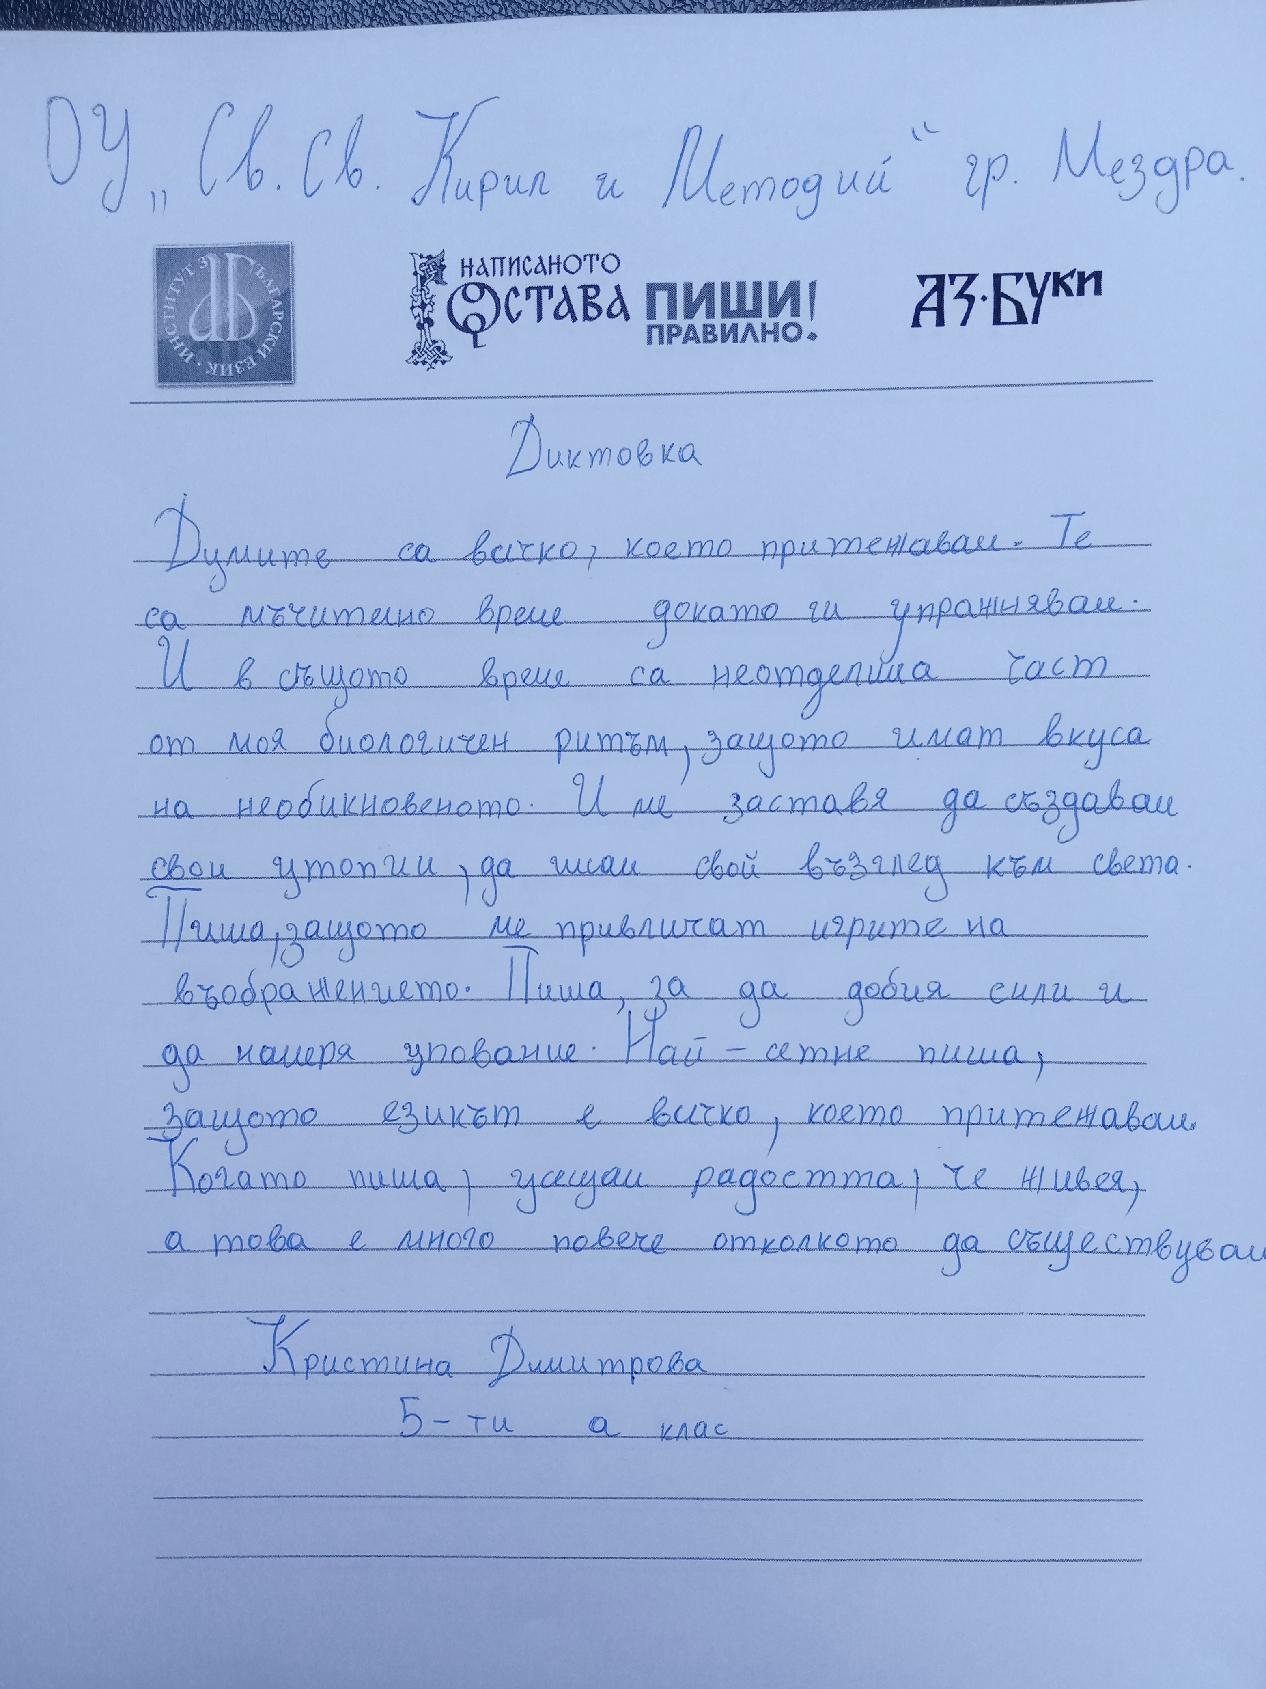 ОУ „Св. Св. Кирил и Методий“ гр. Мездра.
ИНСТИТУТ ЗА БЪЛГАРСКИ ЕЗИК
НАПИСАНОТО
ОСТАВА
ПИШИ
ПРАВИЛНО!
АЗ·БУКИ
Диктовка
Думите са всичко, което притежавам. Те
са мъчително време докато ги упражнявам.
И в същото време са неотделима част
от моя биологичен ритъм, защото имат вкуса
на необикновеното. И ме заставя да създавам
свои утопии, да имам свой възглед към света.
Пиша, защото ме привличат игрите на
въображението. Пиша, за да добия сили и
да намеря упование. Най-сетне пиша,
защото езикът е всичко, което притежавам.
Когато пиша, усещам радостта, че живея,
а това е много повече отколкото да съществувам
Кристина Димитрова
5-ти а клас